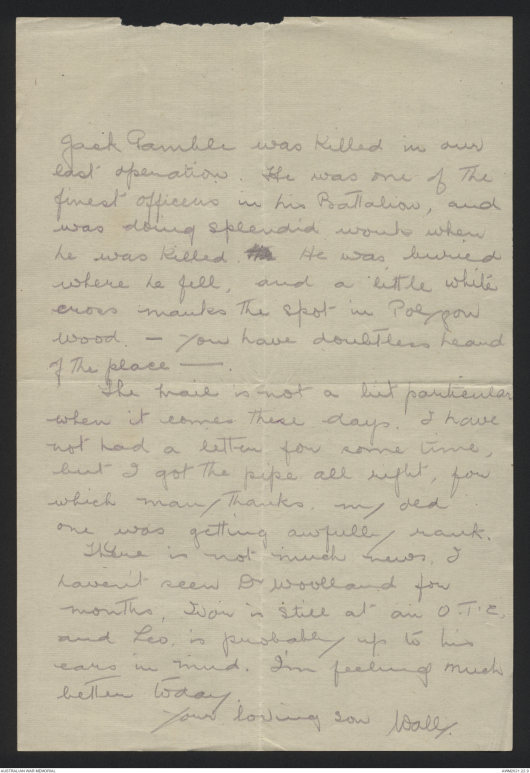 Jack Gamble was killed in our
last operation. He was one of the
finest officers in his Battalion, and
was doing splendid work when
he was killed. He was buried
where he fell, and a little white
cross marks the spot in Polygon
wood. — You have doubtless heard
of the place —.
The mail is not a bit particular
when it comes these days. I have
not had a letter for some time,
but I got the pipe all right, for
which many thanks. My old
one was getting awfully rank.
There is not much news. I
haven't seen Dr Woolland for
months, Ivan is still at an O.T.C.
and Leo is probably up to his
ears in mud. I'm feeling much
better today.
Your loving son Wally.
AUSTRALIAN WAR MEMORIAL